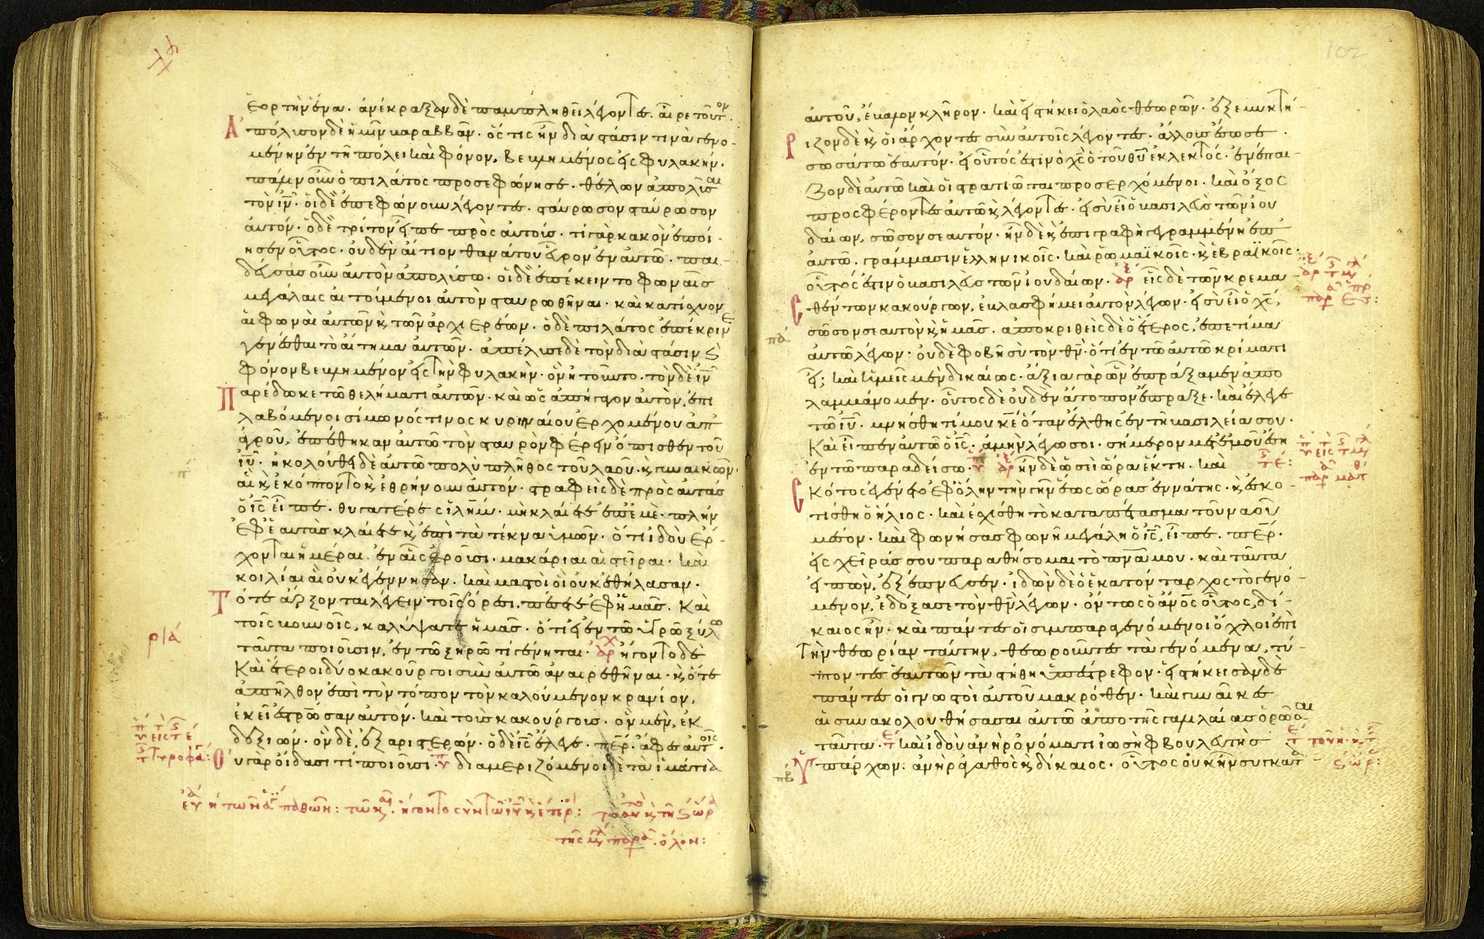 ἑορτὴν ἕνα· ἀνέκραξαν δὲ παμπληθεὶ λέγοντες· αἶρε τοῦτον·
Ἀπόλυσον δὲ ἡμῖν βαραββᾶν· ὅς τις ἦν διὰ στάσιν τινὰ γενο-
μένην ἐν τῇ πόλει καὶ φόνον, βεβλημένος εἰς φυλακήν·
πάλιν οὖν ὁ πιλάτος προσεφώνησε· θέλων ἀπολῦσαι
τὸν ἰν̄· οἱ δὲ ἐπεφώνουν λέγοντες· σταύρωσον σταύρωσον
αὐτόν· ὁ δὲ τρίτον εἶπε πρὸς αὐτούς· τί γὰρ κακὸν ἐποί-
ησεν οὗτος· οὐδὲν αἴτιον θανάτου εὗρον ἐν αὐτῷ· παι-
δεύσας οὖν αὐτὸν ἀπολύσω· οἱ δὲ ἐπέκειντο φωναῖς
μεγάλαις αἰτούμενοι αὐτὸν σταυρωθῆναι· καὶ κατίσχυον
αἱ φωναὶ αὐτῶν ϗ τῶν ἀρχιερέων· ὁ δὲ πιλάτος ἐπέκρινε
γενέσθαι τὸ αἴτημα αὐτῶν· ἀπέλυσε δὲ τὸν διὰ στάσιν ϗ
φόνον βεβλημένον εἰς τὴν φυλακήν· ὃν ἠτοῦντο· τὸν δὲ ἰν̄
Παρέδωκε τῷ θελήματι αὐτῶν· καὶ ὡς ἀπήγαγον αὐτὸν, ἐπι
λαβόμενοι σίμωνός τινος κυρηναίου ἐρχομένου ἀπ
ἀγροῦ, ἐπέθηκαν αὐτῷ τὸν σταυρὸν φέρειν ὄπισθεν τοῦ
ἰῦ· ἠκολούθει δὲ αὐτῷ πολὺ πλῆθος τοῦ λαοῦ· ϗ γυναικῶν·
αἳ ϗ ἐκόπτοντο ϗ ἐθρήνουν αὐτόν· στραφεὶς δὲ πρὸς αὐτὰς
ὁ ἰς̄ εἶπε· θυγατέρες ἰλημ̄· μὴ κλαίετε ἐπ' ἐμὲ· πλὴν
ἐφ' ἑαυτὰς κλαίετε ϗ ἐπὶ τὰ τέκνα ὑμῶν· ὅτι ἰδοὺ ἔρ-
χονται ἡμέραι· ἐν αἷς ἐροῦσι· μακάριαι αἱ στεῖραι· καὶ
κοιλίαι αἳ οὐκ ἐγέννησαν· καὶ μαστοὶ οἳ οὐκ ἐθήλασαν·
Τότε ἄρξονται λέγειν τοῖς ὄρεσι, πέσετε ἐφ' ἡμᾶς· Καὶ
τοῖς βουνοῖς, καλύψατε ἡμᾶς· ὅτι εἰ ἐν τῷ ὑγρῷ ξύλῳ
ταῦτα ποιοῦσιν, ἐν τῷ ξηρῷ τί γένηται· ἀρ ἤγοντο δὲ
Καὶ ἕτεροι δύο κακοῦργοι σὺν αὐτῷ ἀναιρεθῆναι· ϗ ὅτε
ἀπῆλθον ἐπὶ τὸν τόπον τὸν καλούμενον κρανίον,
ἐκεῖ ἐσταύρωσαν αὐτόν· καὶ τοὺς κακούργους· ὃν μὲν, ἐκ
δεξιῶν· ὃν δὲ, ἐξ ἀριστερῶν· ὁ δὲ ἰς̄ ἔλεγε· περ̄· ἄφες αὐτοῖς·
Οὐ γὰρ οἴδασι τί ποιοῦσι· διαμεριζόμενοι δὲ τὰ ἱμάτια
αὐτοῦ, ἔβαλον κλῆρον· καὶ εἱστήκει ὁ λαὸς θεωρῶν· ἐξεμυκτή-
Ριζον δὲ ϗ οἱ ἄρχοντες σὺν αὐτοῖς λέγοντες· ἄλλους ἔσωσε·
σωσάτω ἑαυτόν· εἰ οὗτός ἐστιν ὁ χς̄ ὁ τοῦ θῦ ἐκλεκτός· ἐνέπαι-
ζον δὲ αὐτῷ καὶ οἱ στρατιῶται προσερχόμενοι· καὶ ὄξος
προσφέροντες αὐτῷ ϗ λέγοντες· εἰ σὺ εἶ ὁ βασιλεὺς τῶν ἰου
δαίων, σῶσον σεαυτόν· ἦν δὲ ϗ ἐπιγραφὴ γεγραμμένη ἐπ'
αὐτῷ· γράμμασιν ἑλληνικοῖς· καὶ ῥωμαϊκοῖς· ϗ ἑβραϊκοῖς·
οὗτός ἐστιν ὁ βασιλεὺς τῶν ἰουδαίων· ἀρ εἷς δὲ τῶν κρεμα-
σθέντων κακούργων, ἐβλασφήμει αὐτὸν λέγων· εἰ σὺ εἶ ὁ χς̄,
σῶσον σεαυτὸν ϗ ἡμᾶς· ἀποκριθεὶς δὲ ὁ ἕτερος, ἐπετίμα
αὐτῷ λέγων· οὐδὲ φοβῇ σὺ τὸν θν̄· ὅτι ἐν τῷ αὐτῷ κρίματι
εἶ; καὶ ἡμεῖς μὲν δικαίως· ἄξια γὰρ ὧν ἐπράξαμεν ἀπο
λαμβάνομεν· οὗτος δὲ οὐδὲν ἄτοπον ἔπραξε· καὶ ἔλεγε
τῷ ἰῦ· μνήσθητί μου κε̄ ὅταν ἔλθῃς ἐν τῇ βασιλείᾳ σου·
Καὶ εἶπεν αὐτῷ ὁ ἰς̄· ἀμὴν λέγω σοι· σήμερον μετ' ἐμοῦ ἔσῃ
ἐν τῷ παραδείσῳ· ἦν δὲ ὡσεὶ ὥρα ἕκτη· καὶ
Σκότος ἐγένετο ἐφ' ὅλην τὴν γῆν ἕως ὥρας ἐννάτης· ϗ ἐσκο-
τίσθη ὁ ἥλιος· καὶ ἐσχίσθη τὸ καταπέτασμα τοῦ ναοῦ
μέσον· καὶ φωνήσας φωνῇ μεγάλῃ ὁ ἰς̄, εἶπε· περ̄·
εἰς χεῖράς σου παραθήσομαι τὸ πνᾶ μου· καὶ ταῦτα
εἰπὼν, ἐξέπνευσεν· ἰδὼν δὲ ὁ ἑκατόνταρχος τὸ γενό-
μενον, ἐδόξασε τὸν θν̄ λέγων· ὄντως ὁ ἄνος̄ οὗτος, δί-
καιος ἦν· καὶ πάντες οἱ συμπαραγενόμενοι ὄχλοι ἐπὶ
τὴν θεωρίαν ταύτην, θεωροῦντες τὰ γενόμενα, τύ-
πτοντες ἑαυτῶν τὰ στήθη ὑπέστρεφον· εἱστήκεισαν δὲ
πάντες οἱ γνωστοὶ αὐτοῦ μακρόθεν· καὶ γυναῖκες
αἱ συνακολουθήσασαι αὐτῷ ἀπὸ τῆς γαλιλαίας ὁρῶσαι
ταῦτα· καὶ ἰδοὺ ἀνὴρ ὀνόματι ἰωσὴφ βουλευτὴς
Ὑπάρχων· ἀνὴρ ἀγαθὸς ϗ δίκαιος· οὗτος οὐκ ἦν συγκατ
102